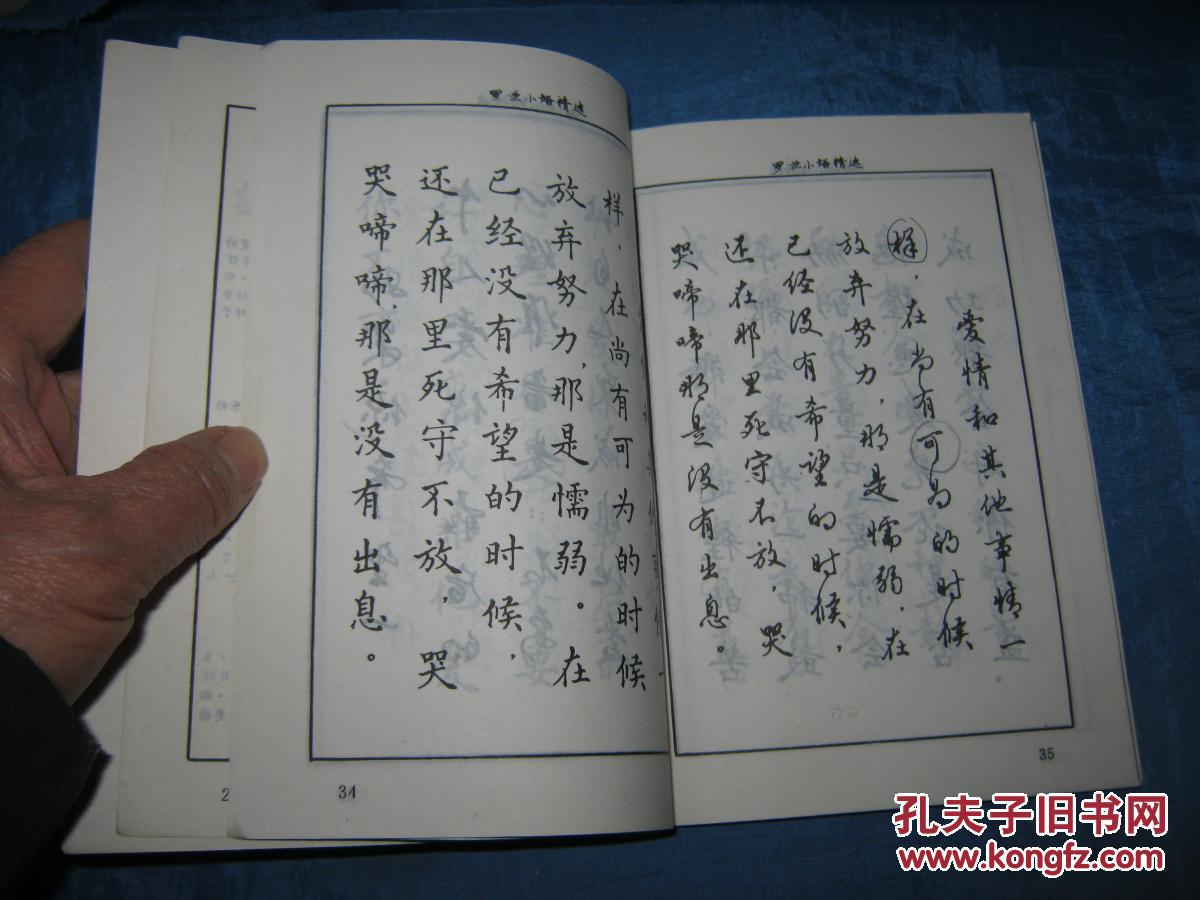 罗兰小语精选
样,在尚有可为的时候
放弃努力,那是懦弱。在
已经没有希望的时候,
还在那里死守不放,哭
哭啼啼,那是没有出息。
34
2
罗兰小语精选
爱情和其他事情一
样,在尚有可为的时候
放弃努力,那是懦弱,在
已经没有希望的时候,
还在那里死守不放,哭
哭啼啼那是没有出息。
35
孔夫子旧书网
www.kongfz.com